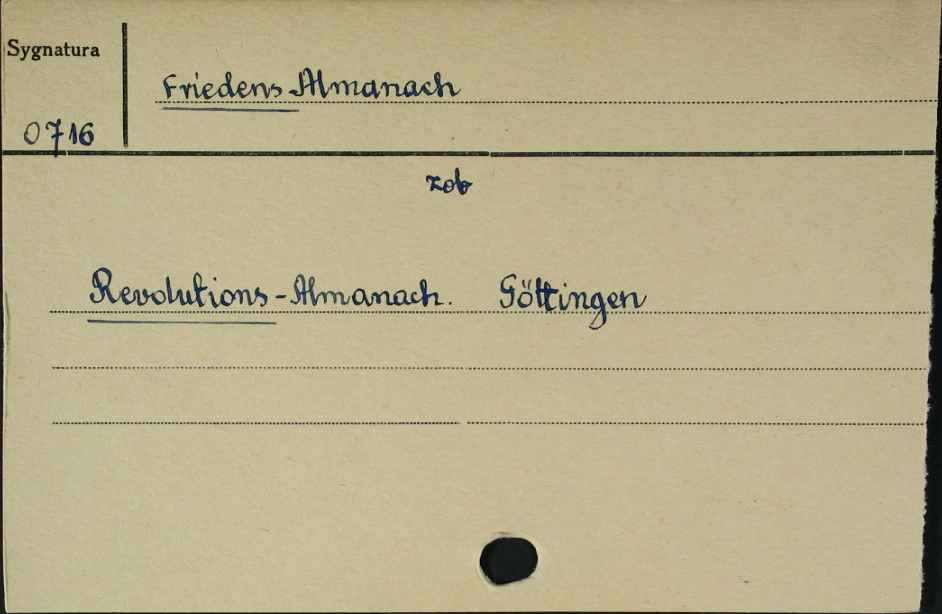 Sygnatura
Friedens-Almanach
0716
zob
Revolutions-Almanach. Göttingen